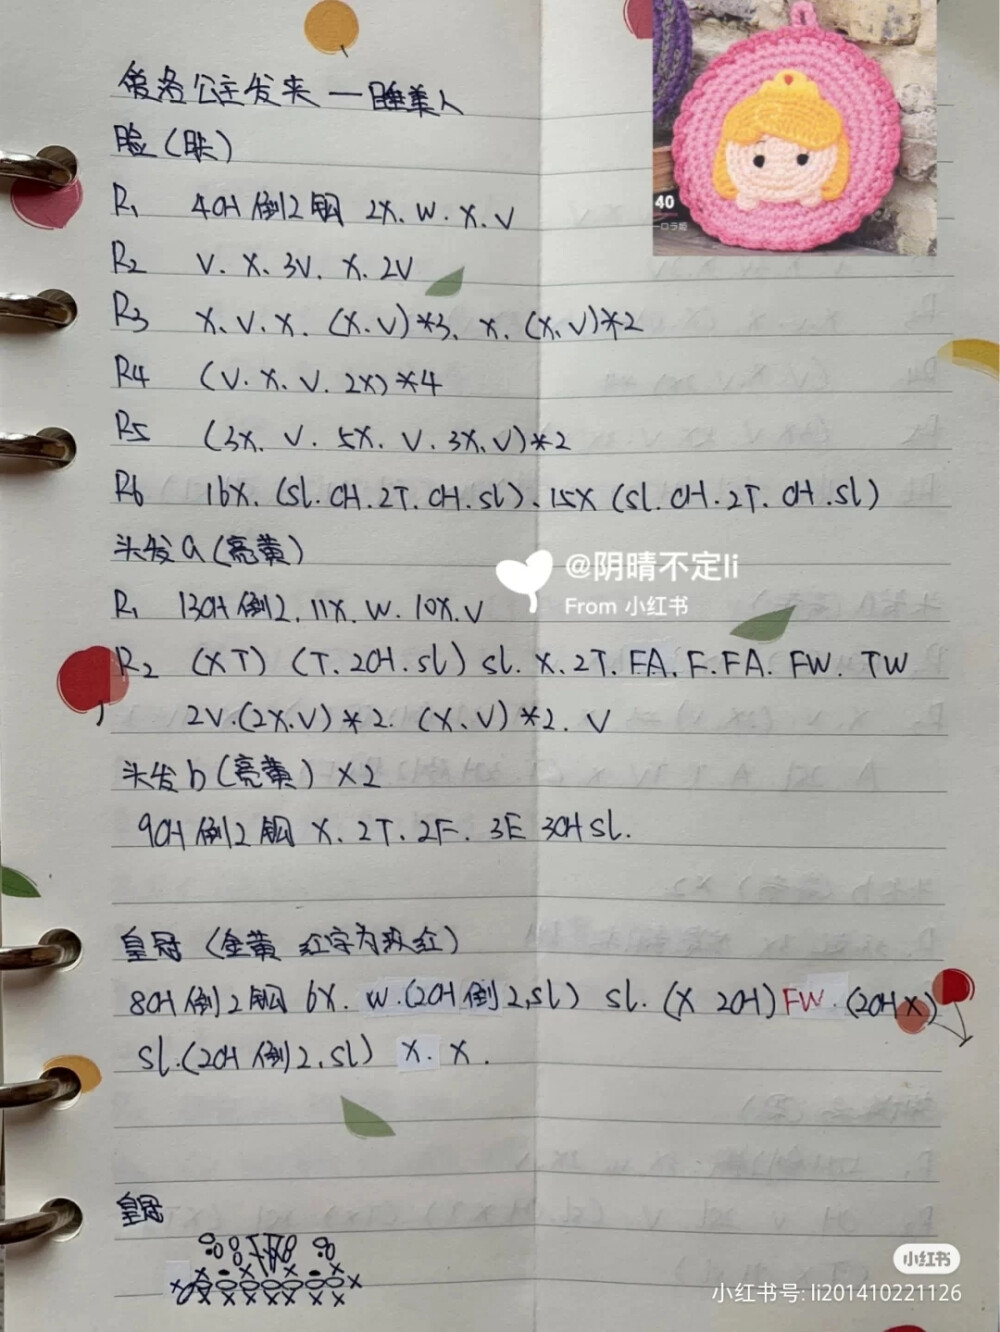 爱洛公主发夹 一 睡美人
脸(肤)
40
R1 4CH 倒2钩 2X. W. X. V
R2 V. X. 3V. X. 2V
R3 X. V. X. (X.V)*3. X. (X.V)*2
R4 (V. X. V. 2X)*4
R5 (3X. V. 5X. V. 3X. V)*2
R6 16X. (sl. CH. 2T. CH. sl). 15X (sl. CH. 2T. CH. sl)
头发a(亮黄)
@阴晴不定li
From 小红书
R1 13CH 倒2. 11X. W. 10X. V
R2 (X T) (T. 2CH. sl) sl. X. 2T. FA. F. FA. FW. TW
2V. (2X.V)*2. (X.V)*2. V
头发b(亮黄) X2
9CH 倒2钩 X. 2T. 2F. 3E 3CH sl.
皇冠 (金黄 红字为玫红)
8CH 倒2钩 6X. W. (2CH 倒2, sl) sl. (X 2CH) FW. (2CH X)
sl. (2CH 倒2, sl) X. X.
皇冠
小红书
小红书号: li201410221126